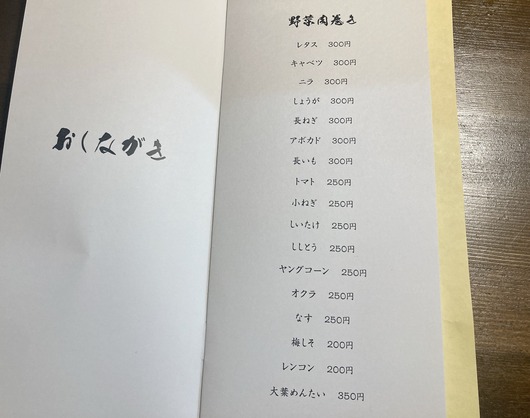 おしながき
野菜肉巻き
レタス 300円
キャベツ 300円
ニラ 300円
しょうが 300円
長ねぎ 300円
アボカド 300円
長いも 300円
トマト 250円
小ねぎ 250円
しいたけ 250円
ししとう 250円
ヤングコーン 250円
オクラ 250円
なす 250円
梅しそ 200円
レンコン 200円
大葉めんたい 350円